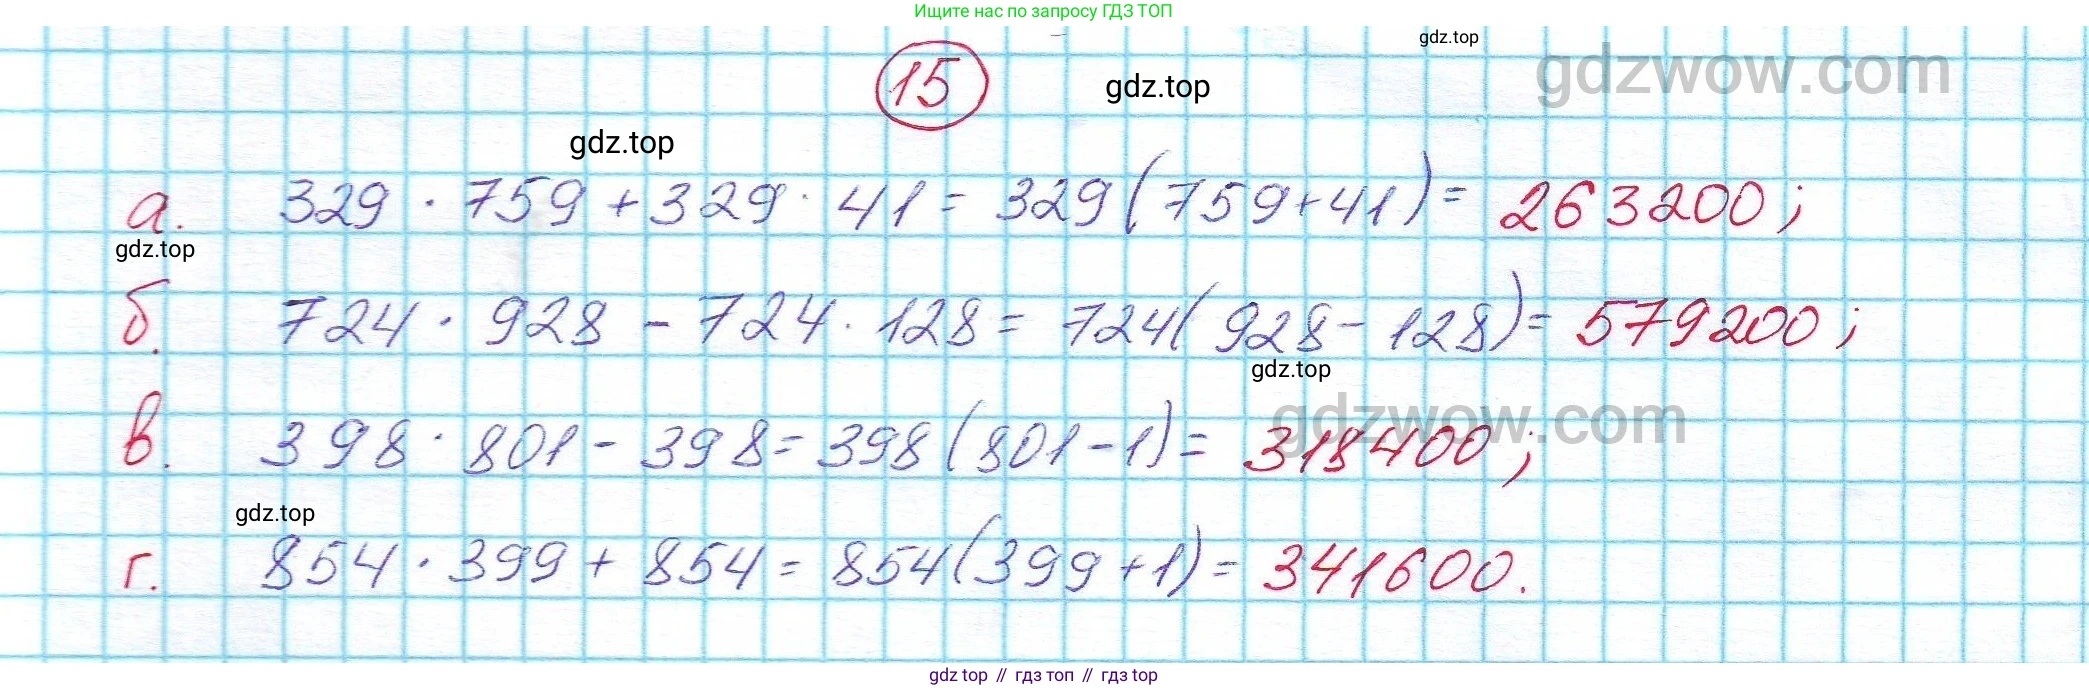 Ищите нас по запросу ГДЗ ТОП
gdz.top
gdzwow.com
15
gdz.top
gdz.top
а. 329 · 759 + 329 · 41 = 329 (759 + 41) = 263200;
gdz.top
б. 724 · 928 - 724 · 128 = 724 (928 - 128) = 579200;
gdz.top
gdzwow.com
в. 398 · 801 - 398 = 398 (801 - 1) = 318400;
gdz.top
г. 854 · 399 + 854 = 854 (399 + 1) = 341600.
gdz top // гдз топ // gdz.top